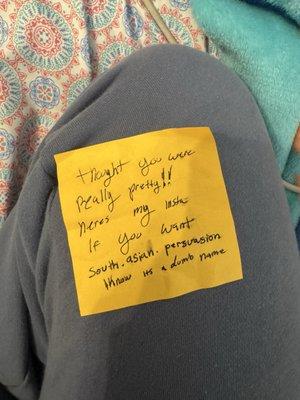 thought you were
Really pretty!!
heres my insta
If you want
South.asian.persuasion
Iknow its a dumb name